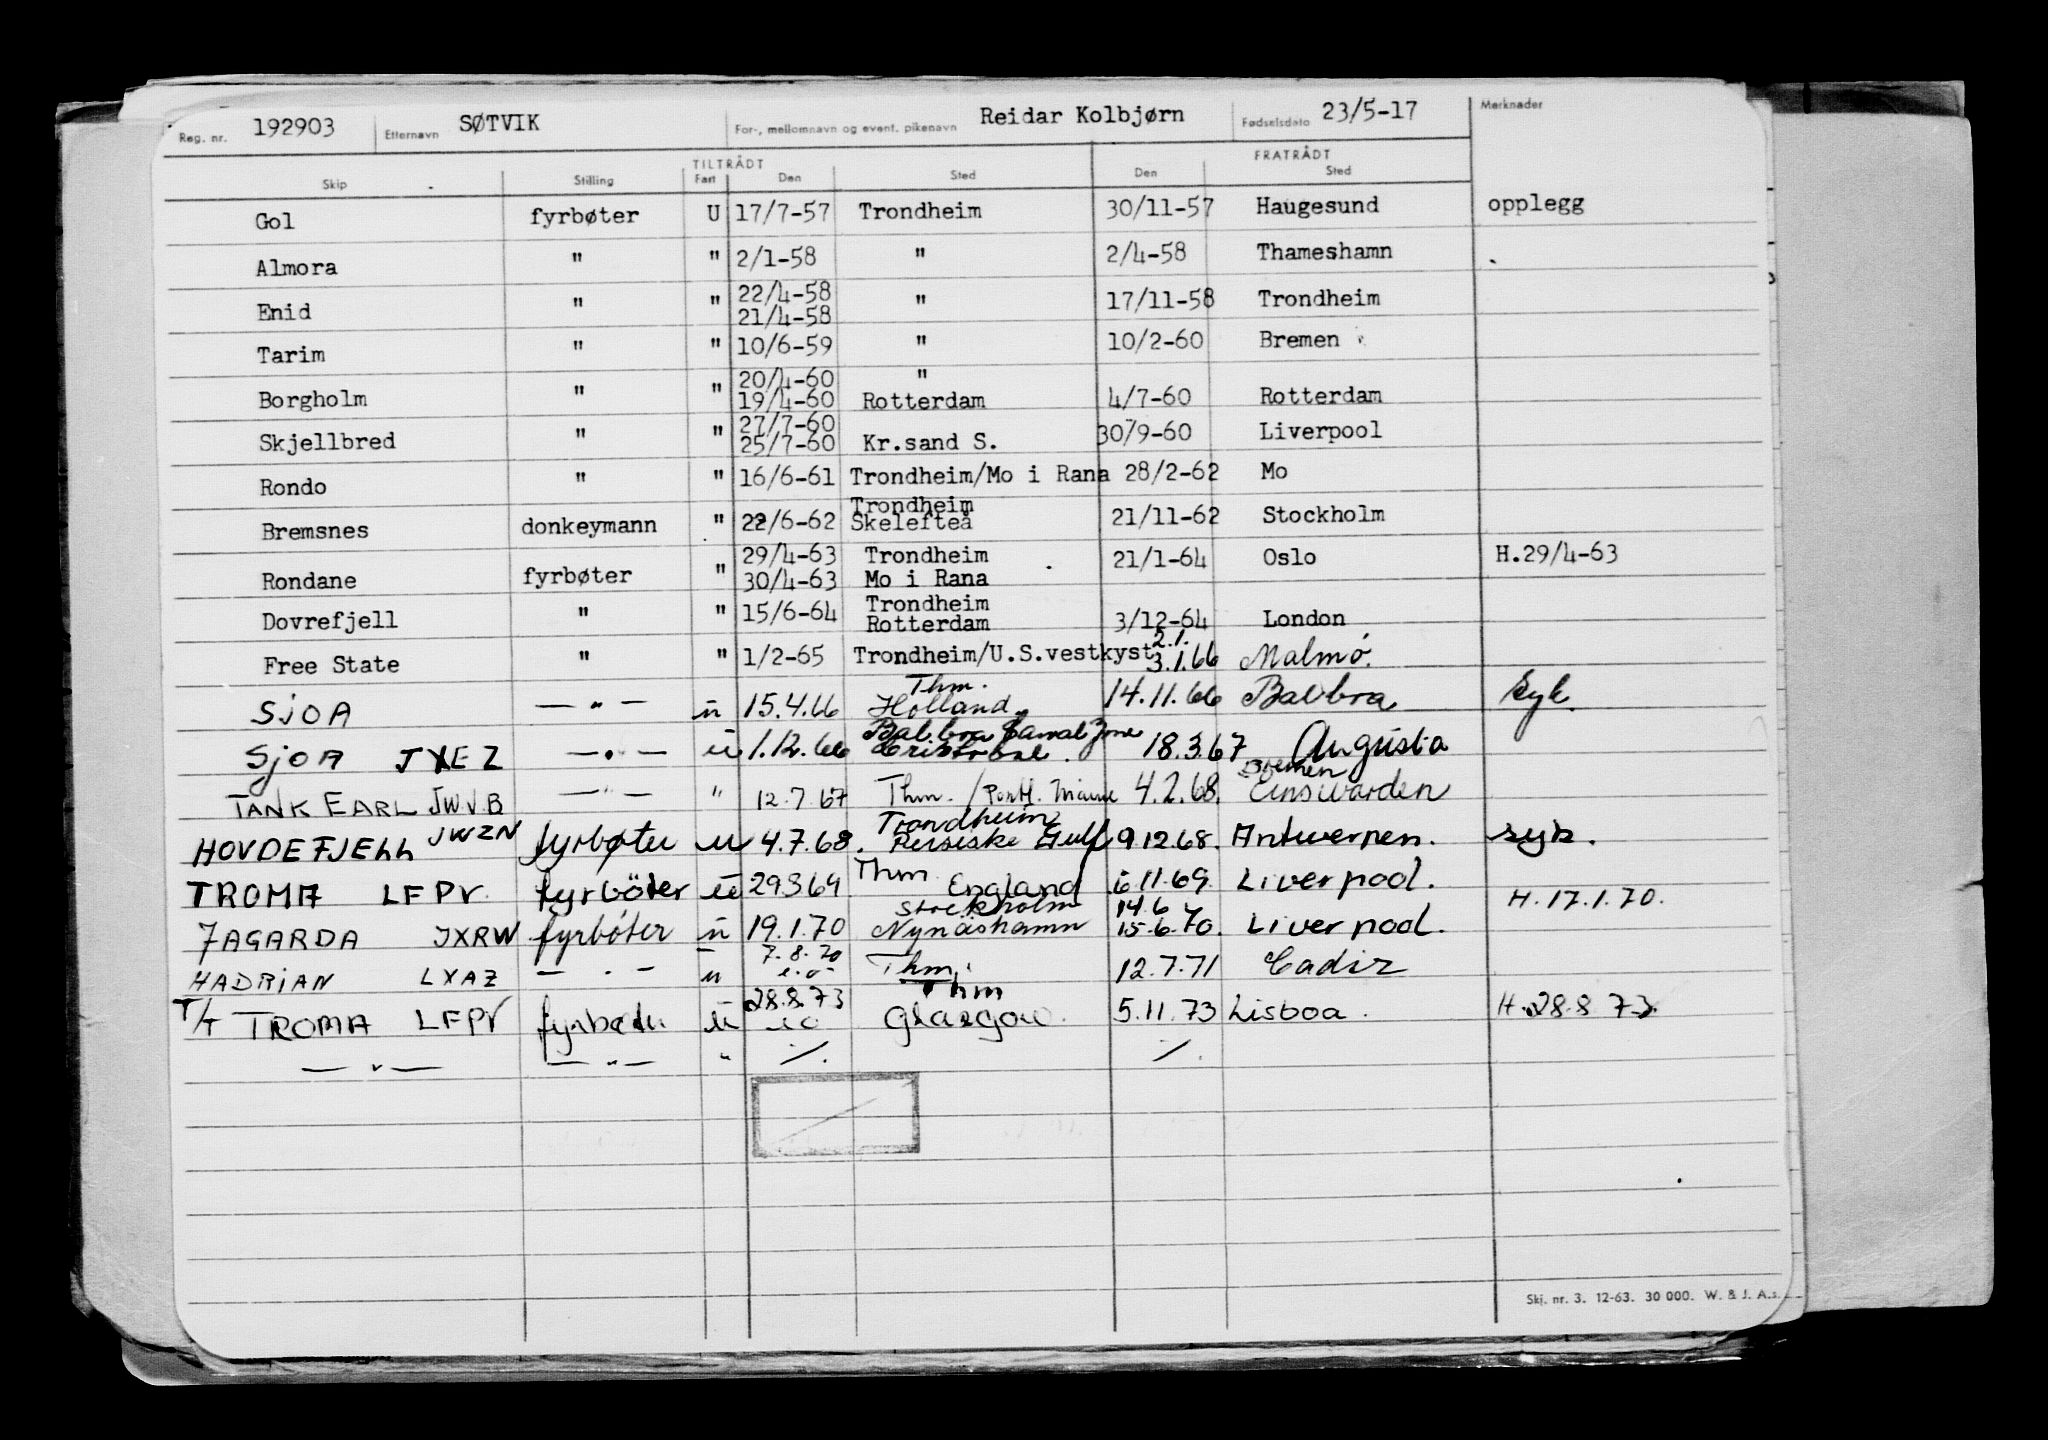 Reg. nr. 192903 Etternavn SØTVIK For-, mellomnavn og event. pikenavn Reidar Kolbjørn Fødselsdato 23/5-17 Merknader
TILTRÅDT FRATRÅDT
Skip Stilling Fart Den Sted Den Sted
Gol fyrbøter U 17/7-57 Trondheim 30/11-57 Haugesund opplegg
Almora " " 2/1-58 " 2/4-58 Thameshamn
22/4-58
Enid " " 21/4-58 " 17/11-58 Trondheim
Tarim " " 10/6-59 " 10/2-60 Bremen
20/4-60 "
Borgholm " " 19/4-60 Rotterdam 4/7-60 Rotterdam
27/7-60
Skjellbred " " 25/7-60 Kr.sand S. 30/9-60 Liverpool
Rondo " " 16/6-61 Trondheim/Mo i Rana 28/2-62 Mo
Trondheim
Bremsnes donkeymann " 22/6-62 Skelefteå 21/11-62 Stockholm
29/4-63 Trondheim 21/1-64 Oslo H.29/4-63
Rondane fyrbøter " 30/4-63 Mo i Rana
Trondheim
Dovrefjell " " 15/6-64 Rotterdam 3/12-64 London
2.1.
Free State " " 1/2-65 Trondheim/U.S.vestkyst 3.1.66 Malmø.
Thm.
SJOA — " — u 15.4.66 Holland 14.11.66 Balboa syk.
Balboa Canal Zone
SJOA JXEZ — " — u 1.12.66 Cristobal. 18.3.67 Augusta
Bremen
TANK EARL JWVB — " — " 12.7.67 Thm. / Portl. Maine 4.2.68. Einswarden
Trondheim
HOVDEFJELL JWZN fyrbøter u 4.7.68. Persiske Gulf 9.12.68. Antwerpen. syk.
Thm.
TROMA LFPV fyrböter u 29.8.69 England 6.11.69. Liverpool.
Stockholm 14.6 H. 17.1.70.
FAGARDA JXRW fyrbóter u 19.1.70 Nynäshamn 15.6.70. Liverpool.
7.8.70
HADRIAN LXAZ — " — u Thm. 12.7.71 Cadiz
28.8.73 Thm
T/T TROMA LFPV fyrbøter u Glasgow. 5.11.73 Lisboa. H. 28.8 73.
— " — — " — " ./. ./.
Skj. nr. 3. 12-63. 30 000. W. & J. A.s.